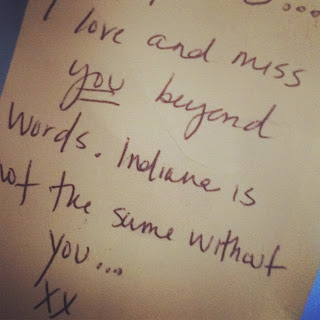 love and miss
you beyond
Words. Indiana is
not the same without
you...
XX